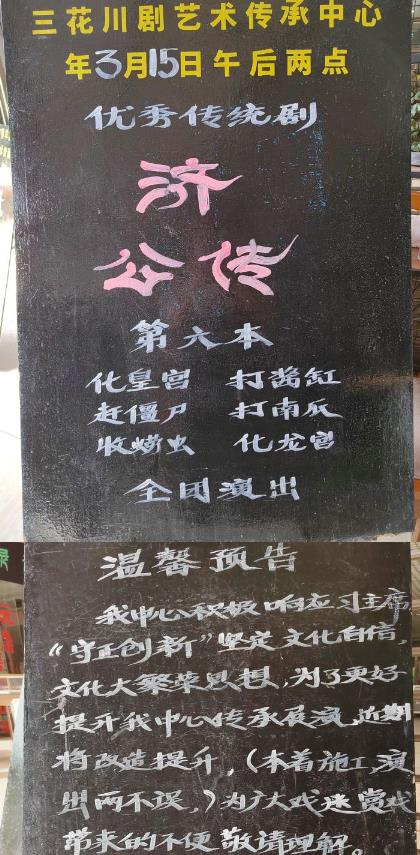 三花川剧艺术传承中心
年3月15日午后两点
优秀传统剧
济
公传
第六本
化皇宫 打酱缸
赶僵尸 打南瓜
收蟒虫 化龙宫
全团演出
温馨预告
我中心积极响应习主席
“守正创新”坚定文化自信,
文化大繁荣思想,为了更好
提升我中心传承展演,近期
将改造提升,(本着施工,演
出两不误,)为广大戏迷赏戏
带来的不便敬请理解。